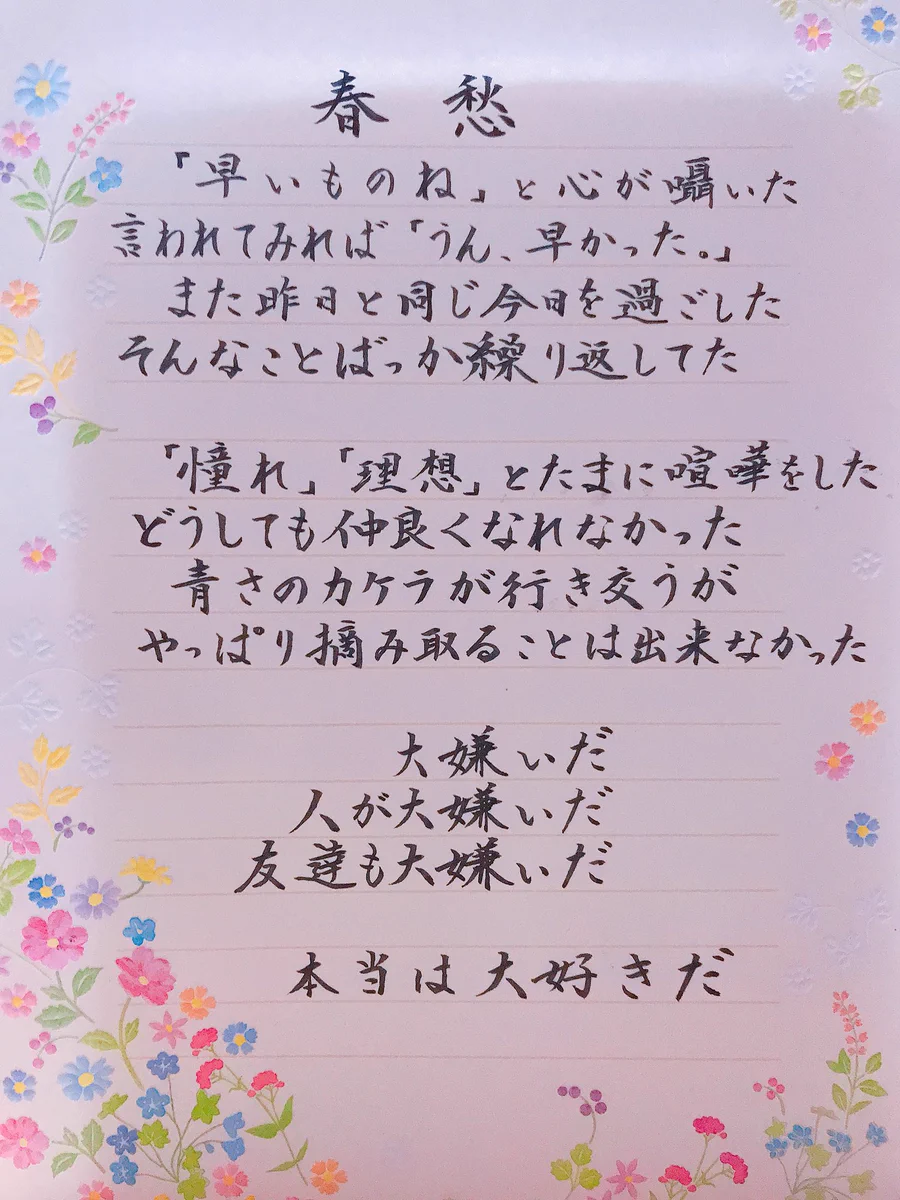 春愁
「早いものね」と心が囁いた
言われてみれば「うん、早かった。」
また昨日と同じ今日を過ごした
そんなことばっか繰り返してた
「憧れ」「理想」とたまに喧嘩をした
どうしても仲良くなれなかった
青さのカケラが行き交うが
やっぱり摘み取ることは出来なかった
大嫌いだ
人が大嫌いだ
友達も大嫌いだ
本当は大好きだ